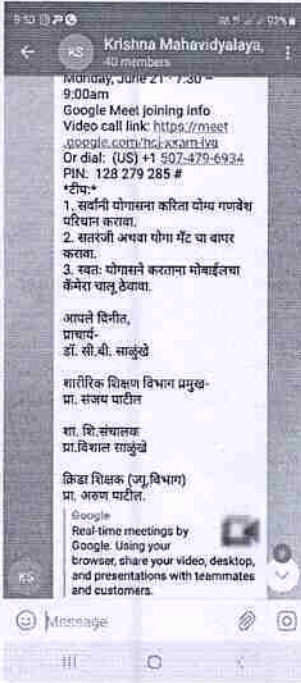 Krishna Mahavidyalaya,
40 members
Monday, June 21 · 7:30 –
9:00am
Google Meet joining info
Video call link: https://meet
Or dial: (US) +1 507-479-6934
PIN: 128 279 285 #
*टीप:*
1. सर्वांनी योगासना करिता योग्य गणवेश
परिधान करावा.
2. सतरंजी अथवा योगा मॅट चा वापर
करावा.
3. स्वतः योगासने करताना मोबाईलचा
कॅमेरा चालू ठेवावा.
आपले विनीत,
प्राचार्य-
डॉ. सी.बी. साळुंखे
शारीरिक शिक्षण विभाग प्रमुख-
प्रा. संजय पाटील
शा. शि.संचालक
प्रा.विशाल साळुंखे
क्रिडा शिक्षक (ज्यु.विभाग)
प्रा. अरुण पाटील.
Google
Real-time meetings by
Google. Using your
browser, share your video, desktop,
and presentations with teammates
and customers.
KS
Message